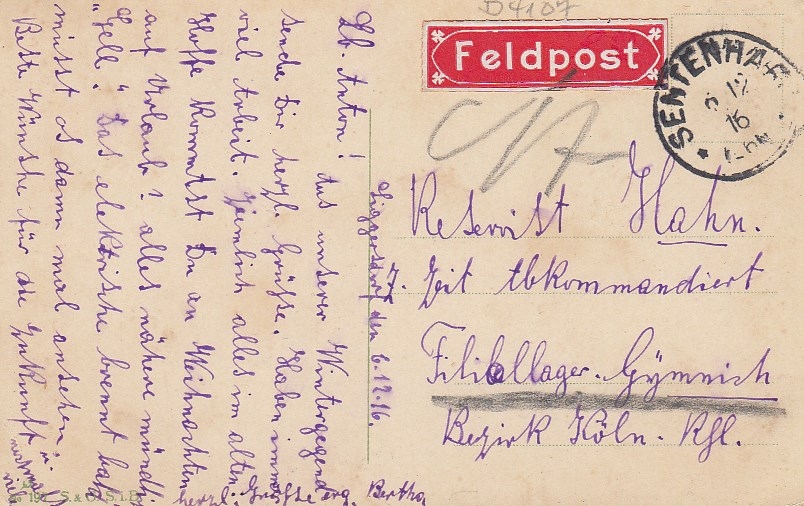 D4107
Feldpost
SENTENHAR
12
16
Reservist Hahn.
z. Zeit Abkommandiert
Filiallager-Gymnich
Bezirk Köln-Rhl.
Liggersdorf den 6.12.16.
Lb. Anton! Aus unserer Wintergegend
sende Dir herzl. Grüße. Haben immer
viel Arbeit. Ziemlich alles im alten.
Hoffe kommst Du an Weihnachten
auf Urlaub? alles nähere mündl.
"Gell." Das elektrische brennt bald
müsst es dann mal ansehen.
Beste Wünsche für die Zukunft u.
nochmal viel
herzl. Grüße erg. Bertha
195 S. & G. S. i. B.